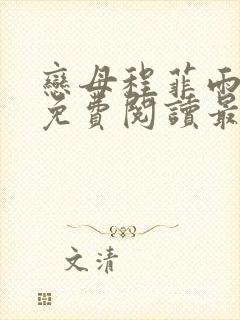 戀母程菲雨
免費閱讀最
文清